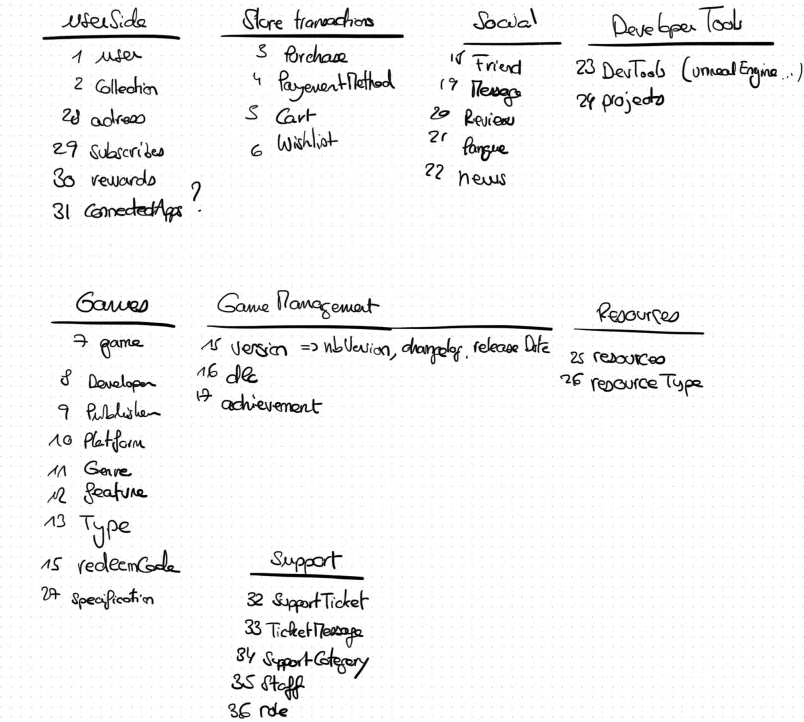 userSide
1 user
2 Collection
28 adress
29 Subscribes
30 rewards
31 ConnectedApps ?
Store transactions
3 Purchase
4 PayementMethod
5 Cart
6 Wishlist
Social
18 Friend
19 Message
20 Review
21 langue
22 news
Developer Tools
23 DevTools (unreal Engine...)
24 projects
Games
7 game
8 Developer
9 Publisher
10 Platform
11 Genre
12 feature
13 Type
15 redeemCode
27 Specification
Game Management
15 version => nbVersion, changelog, release Date
16 dlc
17 achievement
Resources
25 resources
26 resource Type
Support
32 SupportTicket
33 TicketMessage
34 SupportCategory
35 Staff
36 role